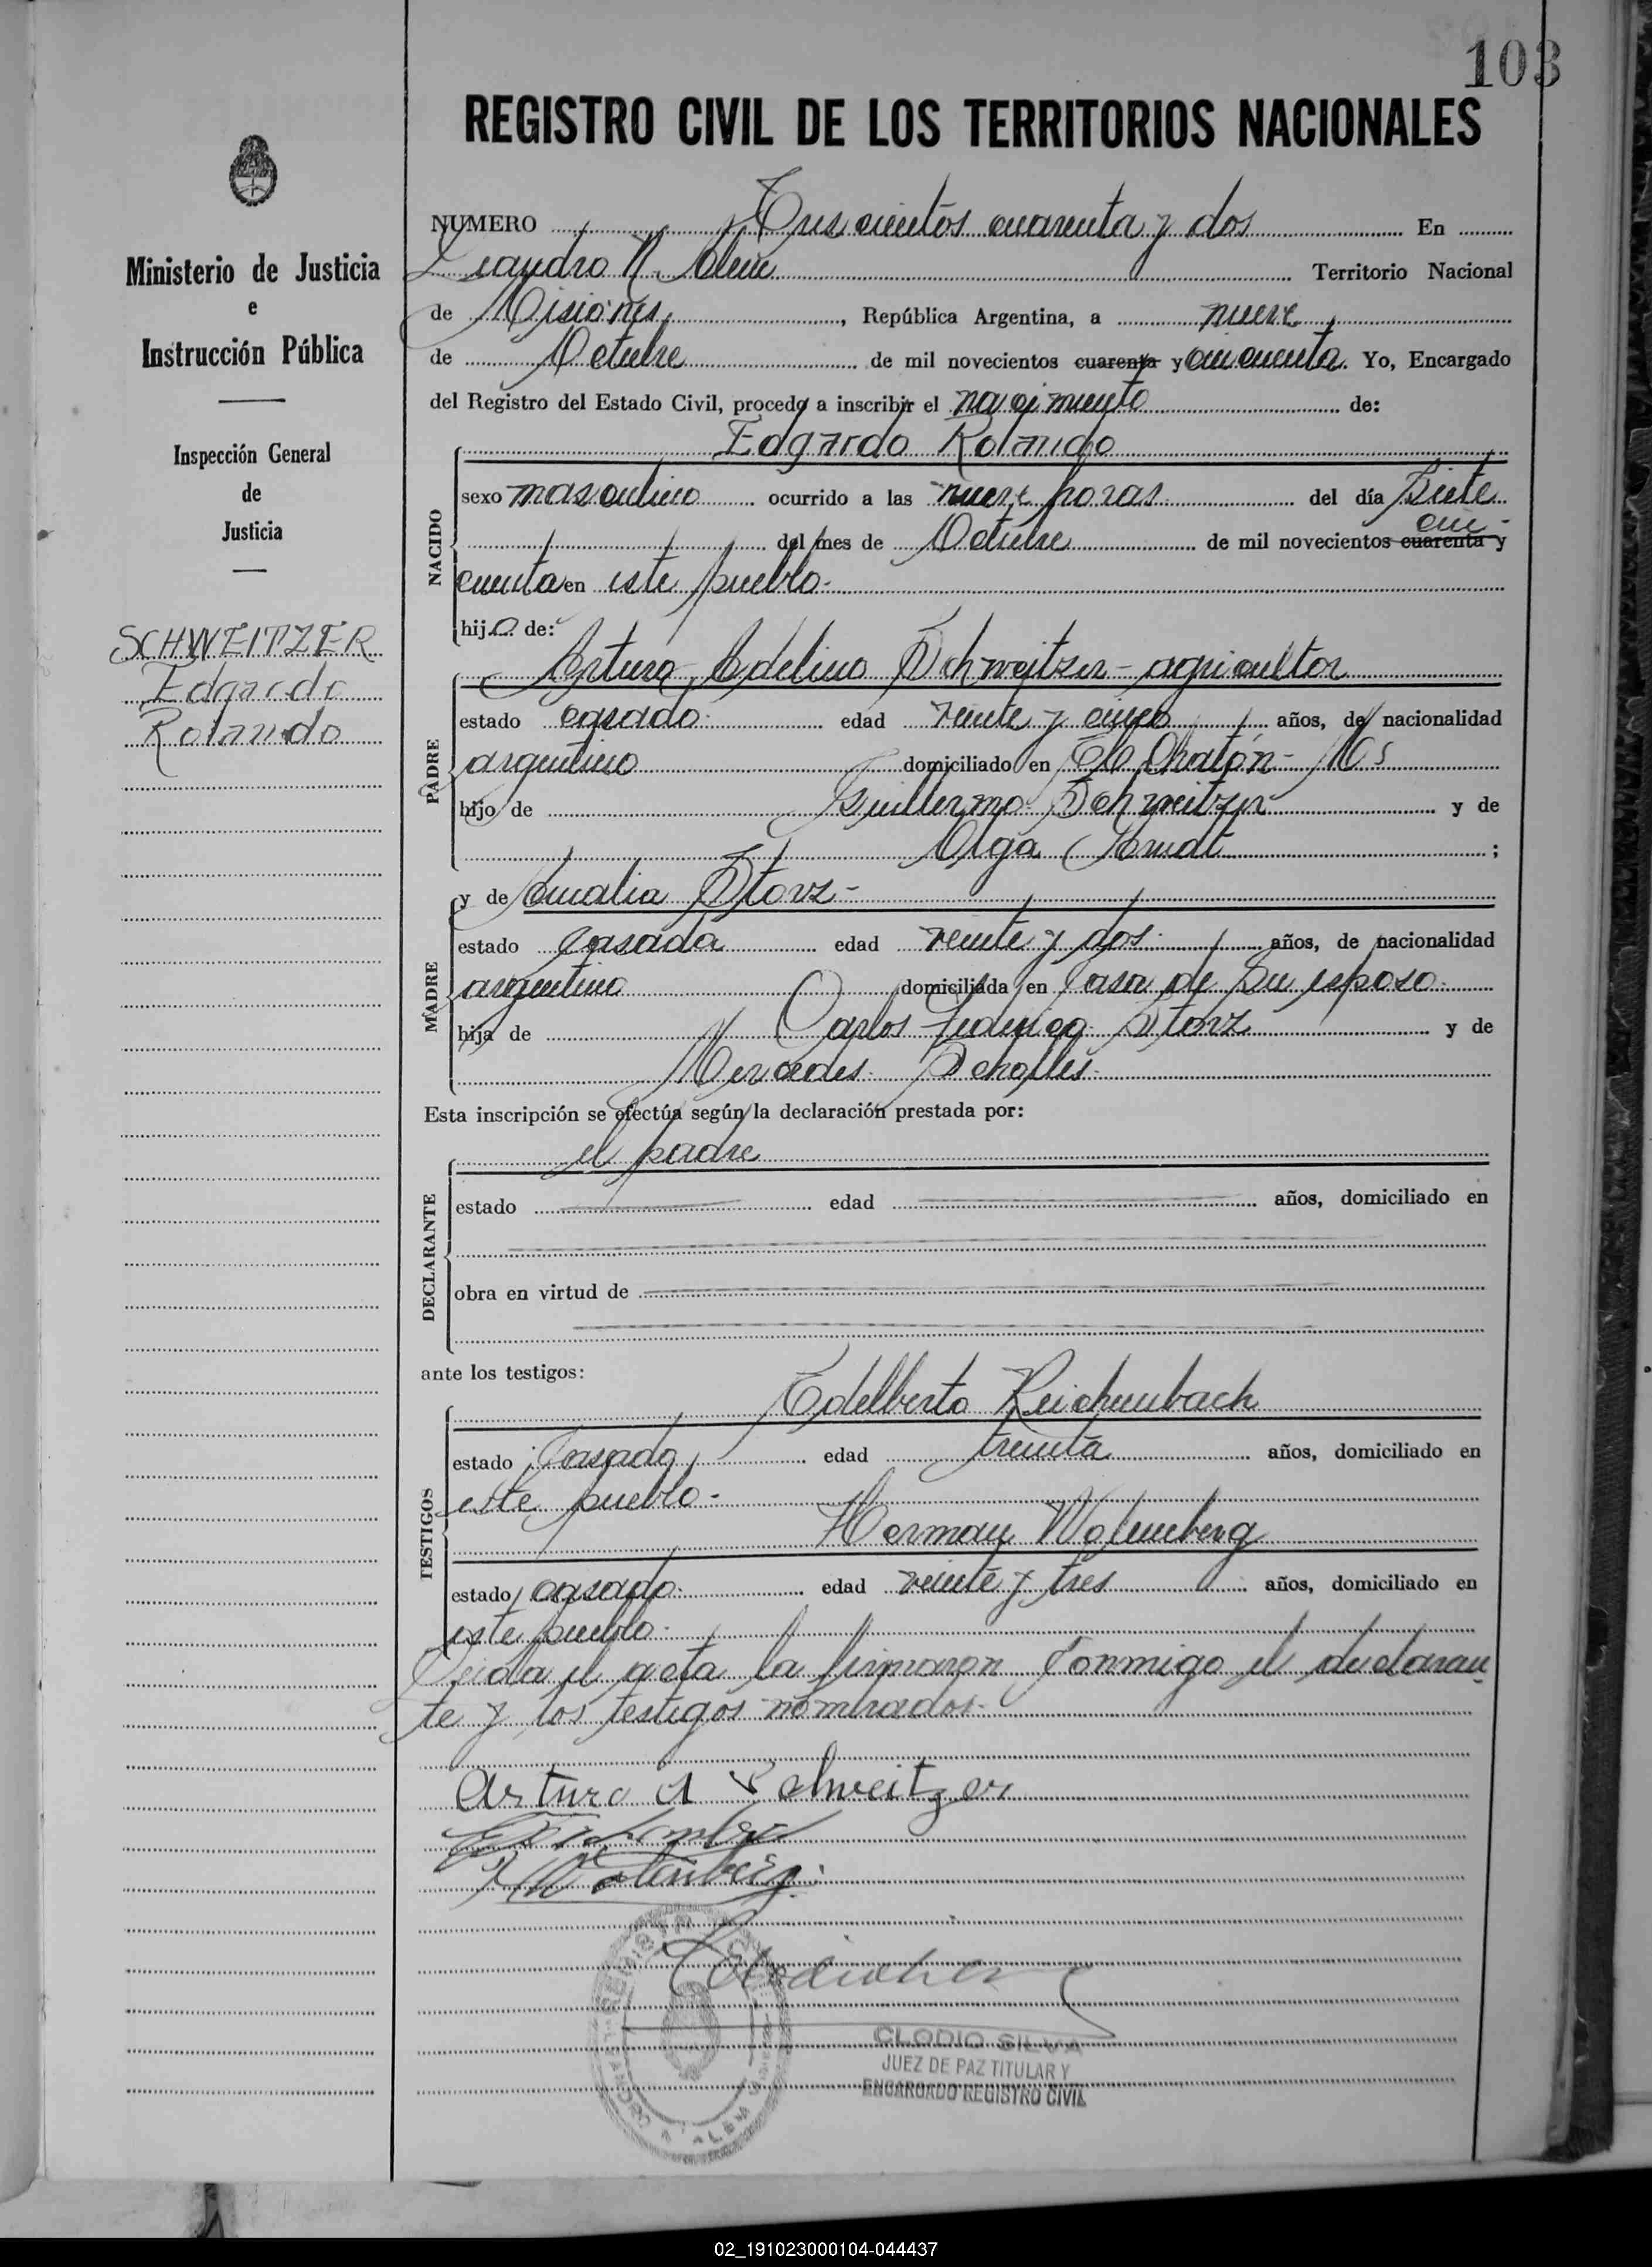 103
REGISTRO CIVIL DE LOS TERRITORIOS NACIONALES
Ministerio de Justicia
e
Instrucción Pública
Inspección General
de
Justicia
SCHWEITZER
Edgardo
Rolando
NUMERO Trescientos cuarenta y dos En
Leandro N. Alem Territorio Nacional
de Misiones, República Argentina, a nueve
de Octubre de mil novecientos cuarenta y cincuenta. Yo, Encargado
del Registro del Estado Civil, procedo a inscribir el nacimiento de:
Edgardo Rolando
NACIDO
sexo masculino ocurrido a las nueve horas del día Siete
del mes de Octubre de mil novecientos cuarenta y cin-
cuenta en este pueblo-
hijo de:
Arturo Adelino Schweitzer - agricultor
PADRE
estado casado edad veinte y cinco años, de nacionalidad
argentino domiciliado en El Chatón - Ms
hijo de Guillermo Schweitzer y de
Olga Arndt ;
y de Amalia Storz-
MADRE
estado casada edad veinte y dos años, de nacionalidad
argentino domiciliada en casa de su esposo
hija de Carlos Federico Storz y de
Mercedes Scholles
Esta inscripción se efectúa según la declaración prestada por:
el padre
DECLARANTE
estado edad años, domiciliado en
obra en virtud de
ante los testigos:
Edelberto Reichembach
TESTIGOS
estado casado edad treinta años, domiciliado en
este pueblo-
Herman Wolemberg
estado casado edad veinte y tres años, domiciliado en
este pueblo-
Leida el acta la firmaron conmigo el declaran-
te y los testigos nombrados-
Arturo A Schweitzer
CLODIO SILVA
JUEZ DE PAZ TITULAR Y
ENCARGADO REGISTRO CIVIL
02_191023000104-044437